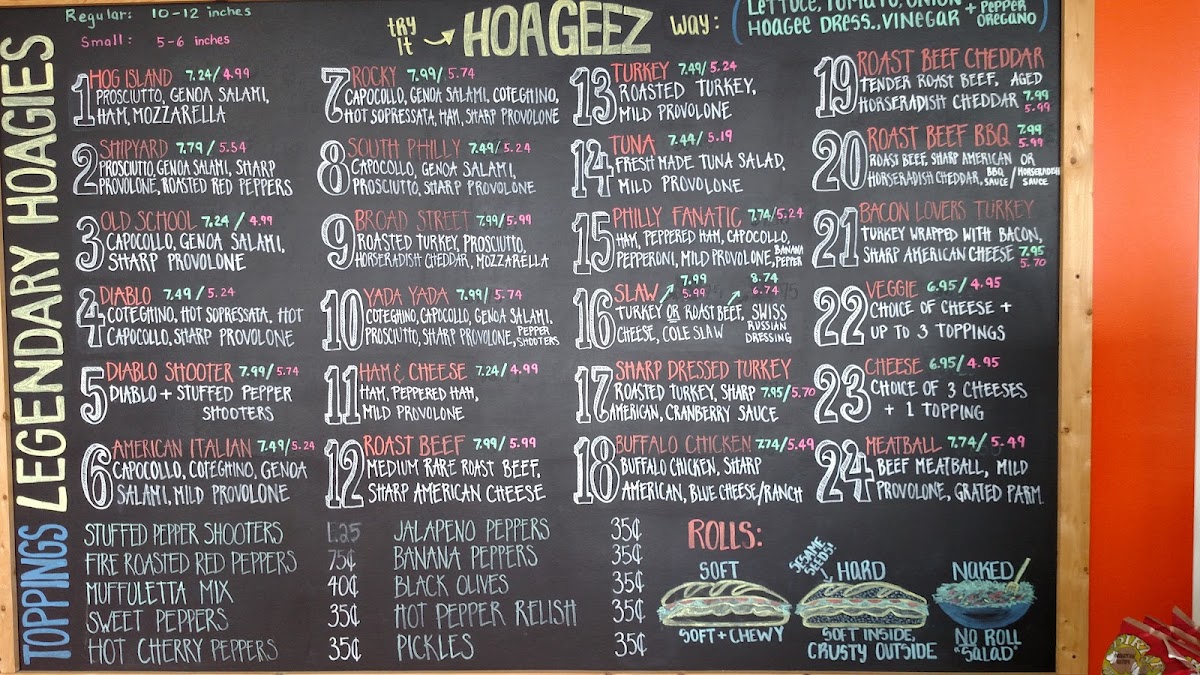 Regular: 10-12 inches
Small: 5-6 inches
TRY IT HOAGEEZ WAY:
LETTUCE, TOMATO, ONION
HOAGEE DRESS.. VINEGAR + PEPPER OREGANO
LEGENDARY HOAGIES
1 HOG ISLAND 7.24/4.99
PROSCIUTTO, GENOA SALAMI,
HAM, MOZZARELLA
2 SHIPYARD 7.79/5.54
PROSCIUTO, GENOA SALAMI, SHARP
PROVOLONE, ROASTED RED PEPPERS
3 OLD SCHOOL 7.24/4.99
CAPOCOLLO, GENOA SALAMI,
SHARP PROVOLONE
4 DIABLO 7.49/5.24
COTEGHINO, HOT SOPRESSATA, HOT
CAPOCOLLO, SHARP PROVOLONE
5 DIABLO SHOOTER 7.99/5.74
DIABLO + STUFFED PEPPER
SHOOTERS
6 AMERICAN ITALIAN 7.49/5.24
CAPOCOLLO, COTEGHINO, GENOA
SALAMI, MILD PROVOLONE
7 ROCKY 7.99/5.74
CAPOCOLLO, GENOA SALAMI, COTEGHINO,
HOT SOPRESSATA, HAM, SHARP PROVOLONE
8 SOUTH PHILLY 7.49/5.24
CAPOCOLLO, GENOA SALAMI,
PROSCIUTTO, SHARP PROVOLONE
9 BROAD STREET 7.99/5.99
ROASTED TURKEY, PROSCIUTTO,
HORSERADISH CHEDDAR, MOZZARELLA
10 YADA YADA 7.99/5.74
COTEGHINO, CAPOCOLLO, GENOA SALAMI,
PROSCIUTTO, SHARP PROVOLONE, PEPPER SHOOTERS
11 HAM & CHEESE 7.24/4.99
HAM, PEPPERED HAM,
MILD PROVOLONE
12 ROAST BEEF 7.99/5.99
MEDIUM RARE ROAST BEEF,
SHARP AMERICAN CHEESE
13 TURKEY 7.49/5.24
ROASTED TURKEY,
MILD PROVOLONE
14 TUNA 7.44/5.19
FRESH MADE TUNA SALAD,
MILD PROVOLONE
15 PHILLY FANATIC 7.74/5.24
HAM, PEPPERED HAM, CAPOCOLLO,
PEPPERONI, MILD PROVOLONE, BANANA PEPPER
16 SLAW 7.99 5.99 8.74 6.74
TURKEY OR ROAST BEEF, SWISS
CHEESE, COLE SLAW RUSSIAN DRESSING
17 SHARP DRESSED TURKEY
ROASTED TURKEY, SHARP 7.95/5.70
AMERICAN, CRANBERRY SAUCE
18 BUFFALO CHICKEN 7.74/5.49
BUFFALO CHICKEN, SHARP
AMERICAN, BLUE CHEESE/RANCH
19 ROAST BEEF CHEDDAR
TENDER ROAST BEEF, AGED
HORSERADISH CHEDDAR 7.99 5.99
20 ROAST BEEF BBQ 7.99 5.99
ROAST BEEF, SHARP AMERICAN OR
HORSERADISH CHEDDAR, BBQ SAUCE/HORSERADISH SAUCE
21 BACON LOVERS TURKEY
TURKEY WRAPPED WITH BACON,
SHARP AMERICAN CHEESE 7.95 5.70
22 VEGGIE 6.95/4.95
CHOICE OF CHEESE +
UP TO 3 TOPPINGS
23 CHEESE 6.95/4.95
CHOICE OF 3 CHEESES
+ 1 TOPPING
24 MEATBALL 7.74/5.49
BEEF MEATBALL, MILD
PROVOLONE, GRATED PARM.
TOPPINGS
STUFFED PEPPER SHOOTERS 1.25
FIRE ROASTED RED PEPPERS 75¢
MUFFULETTA MIX 40¢
SWEET PEPPERS 35¢
HOT CHERRY PEPPERS 35¢
JALAPENO PEPPERS 35¢
BANANA PEPPERS 35¢
BLACK OLIVES 35¢
HOT PEPPER RELISH 35¢
PICKLES 35¢
ROLLS:
SOFT
SOFT + CHEWY
SESAME SEEDS!
HARD
SOFT INSIDE,
CRUSTY OUTSIDE
NAKED
NO ROLL
"SALAD"